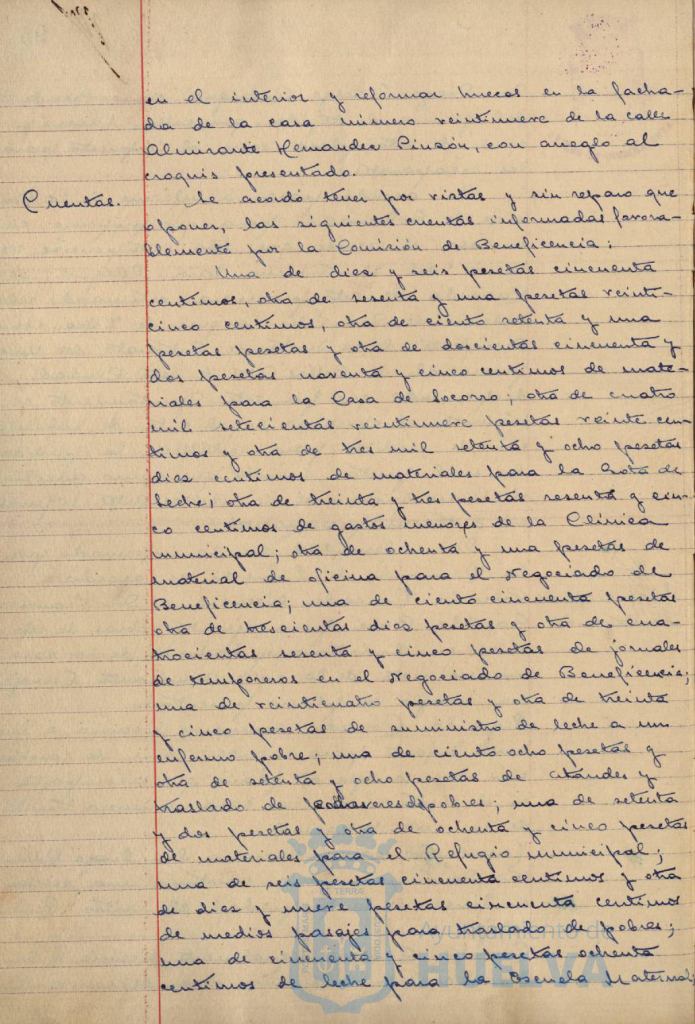 en el interior y reformar huecos en la facha-
da de la casa número veintinueve de la calle
Almirante Hernandez Pinzón, con arreglo al
croquis presentado.
Cuentas. Se acordó tener por vistas y sin reparo que
oponer, las siguientes cuentas informadas favora-
blemente por la Comisión de Beneficencia:
Una de diez y seis pesetas cincuenta
centimos, otra de sesenta y una pesetas veinti-
cinco centimos, otra de ciento setenta y una
pesetas pesetas y otra de doscientas cincuenta y
dos pesetas noventa y cinco centimos de mate-
riales para la Casa de Socorro; otra de cuatro
mil setecientas veintinueve pesetas veinte cen-
timos y otra de tres mil setenta y ocho pesetas
diez centimos de materiales para la Gota de
Leche; otra de treinta y tres pesetas sesenta y cin-
co centimos de gastos menores de la Clínica
municipal; otra de ochenta y una pesetas de
material de oficina para el Negociado de
Beneficencia; una de ciento cincuenta pesetas
otra de trescientas diez pesetas y otra de cua-
trocientas sesenta y cinco pesetas de jornales
de temporeros en el Negociado de Beneficencia;
una de veinticuatro pesetas y otra de treinta
y cinco pesetas de suministro de leche a un
enfermo pobre; una de ciento ocho pesetas y
otra de setenta y ocho pesetas de ataudes y
traslado de cadaveres de pobres; una de setenta
y dos pesetas y otra de ochenta y cinco pesetas
de materiales para el Refugio municipal;
una de seis pesetas cincuenta centimos y otra
de diez y nueve pesetas cincuenta centimos
de medios pasajes para traslado de pobres;
una de cincuenta y cinco pesetas ochenta
centimos de leche para la Escuela Maternal;
Ayuntamiento de
HUELVA